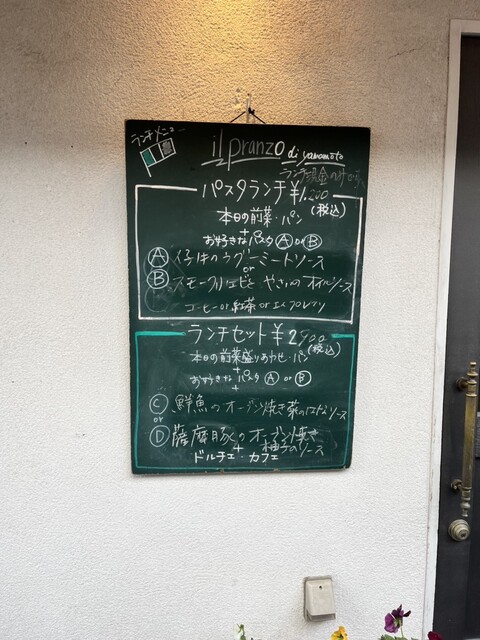 ランチメニュー
il pranzo
di yamamoto
ランチ現金のみ
パスタランチ ¥1,200
(税込)
本日の前菜・パン
+
お好きなパスタ Ⓐ or Ⓑ
Ⓐ 仔牛のラグーミートソース
or
Ⓑ スモークサーモンと やさいの オイルソース
コーヒー or 紅茶 or エスプレッソ
ランチセット ¥2900
(税込)
本日の前菜盛りあわせ・パン
+
お好きなパスタ Ⓐ or Ⓑ
+
Ⓒ 鮮魚のオーブン焼き 菜のはなソース
or
Ⓓ 薩摩豚のオーブン焼き
柚子のソース
+
ドルチェ・カフェ